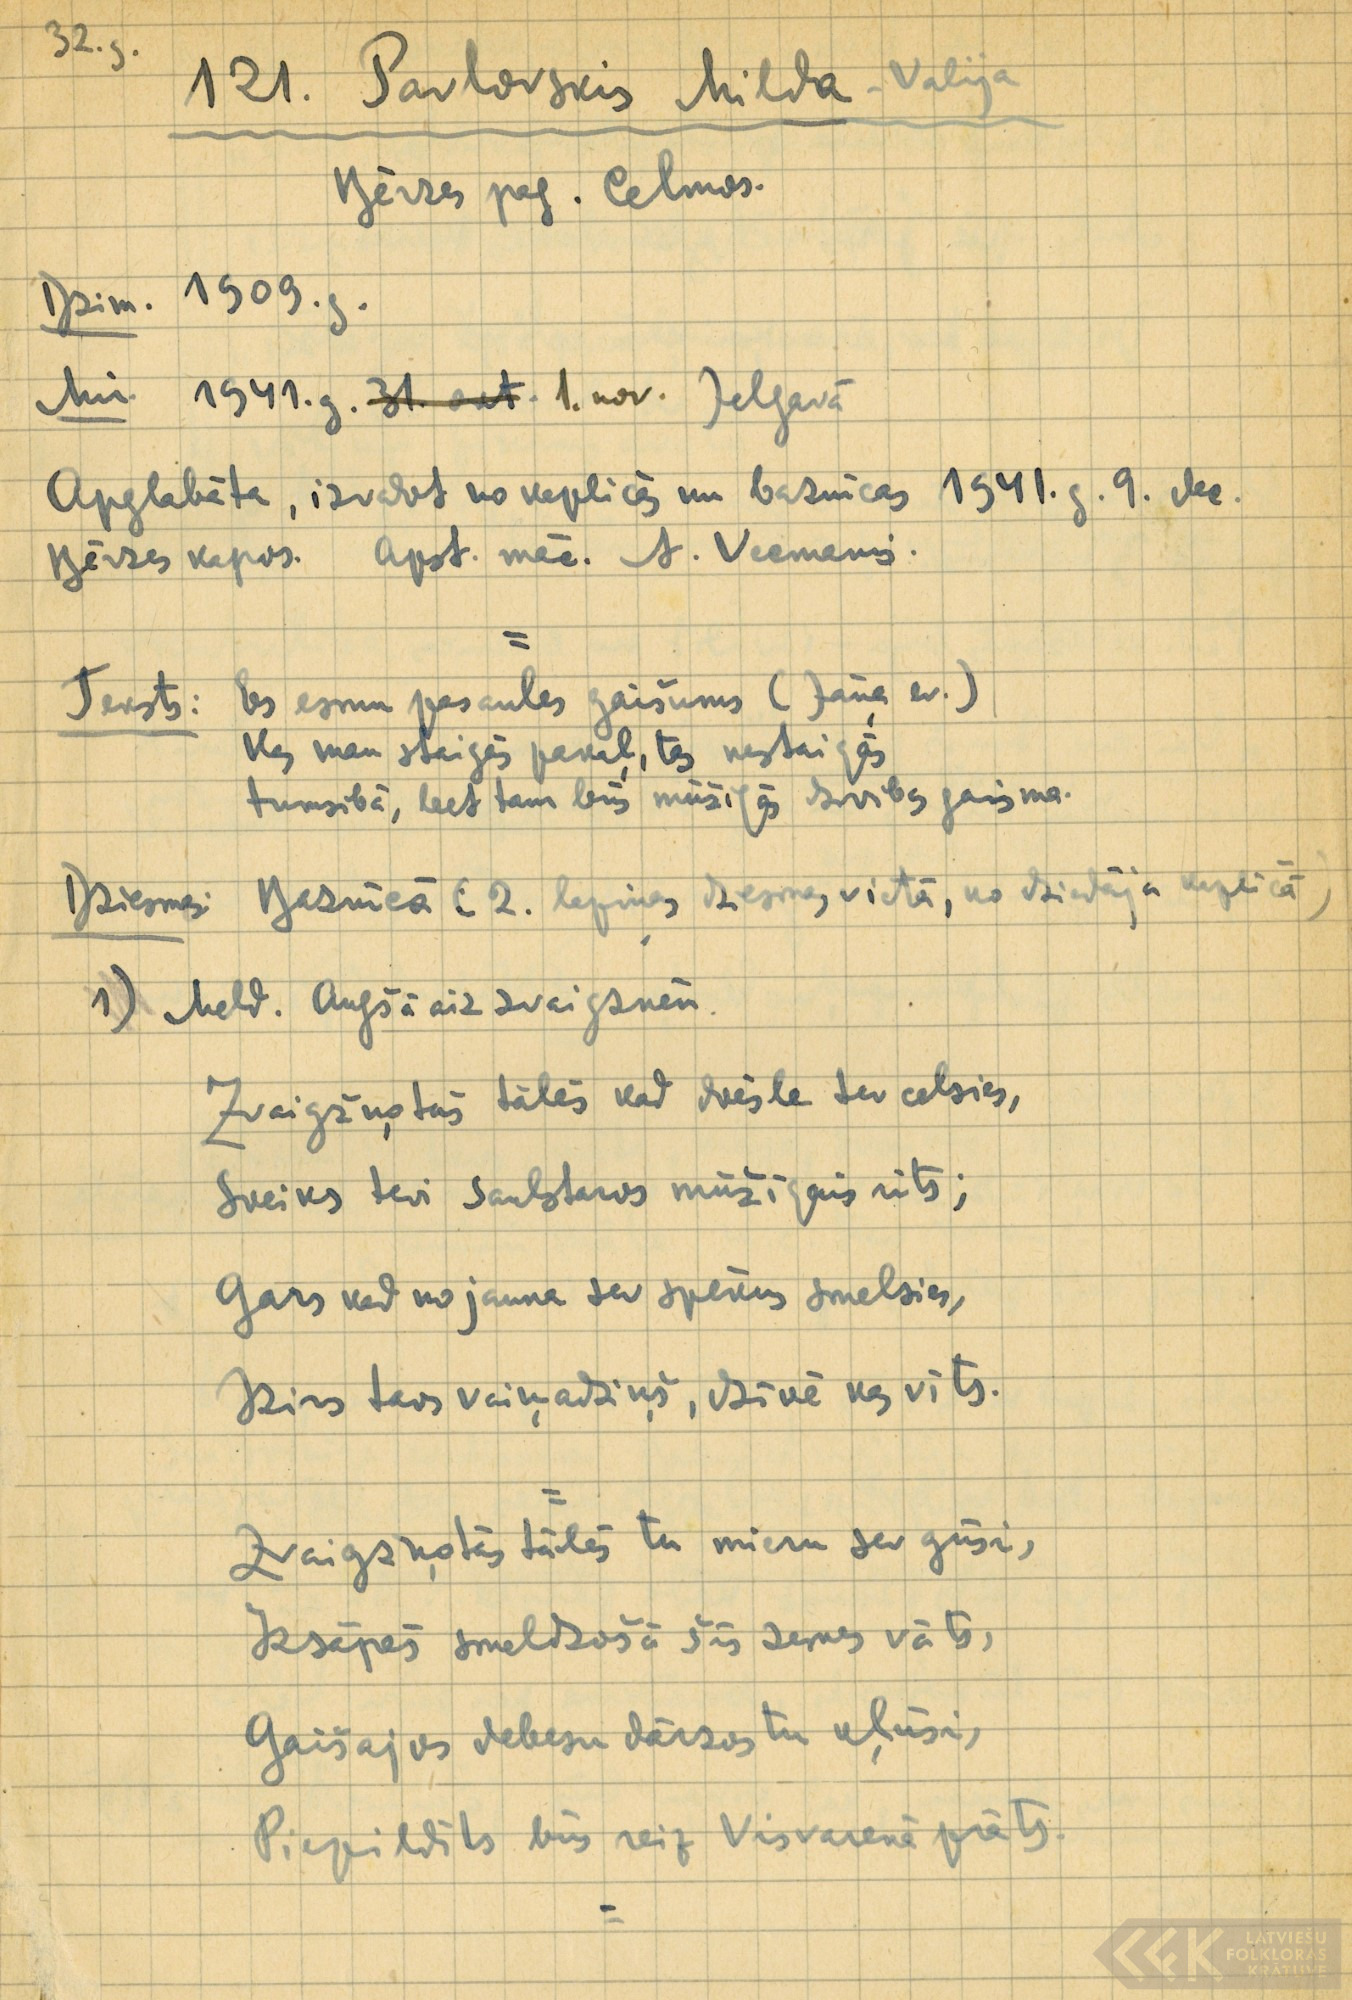 32.g.
121. Pavlovskis Milda - Valija
Bērzes pag. Celmos.
Dzim. 1909.g.
Mir. 1941.g. 31. okt. 1. nov. Jelgavā
Apglabāta, izvadot no kapličas un baznīcas 1941.g. 9. dec.
Bērzes kapos. Apst. māc. A. Veemanis.
=
Teksts: Es esmu pasaules gaišums (Jāņa ev.)
Kas man staigās pakaļ, tas nestaigās
tumsībā, bet tam būs mūžīgās dzīvības gaisma.
Dziesmas: Baznīcā (2. lapiņas dziesmas vietā, ko dziedāja kapličā)
1) Meld. Augšā aiz zvaigznēm.
Zvaigžņotās tālēs kad dvēsle tev celsies,
Sveiks tevi saulstaros mūžīgais rīts;
Gars kad no jauna sev spēkus smelsies,
Izirs tavs vaiņadziņš, dzīvē kas vīts.
=
Zvaigzņotās tālēs tu mieru sev gūsi,
Izsāpēs smeldzošā šīs zemes vāts,
Gaišajos debesu dārzos tu kļūsi,
Piepildīts būs reiz Visvarenā prāts.
=
LATVIEŠU
FOLKLORAS
KRĀTUVE